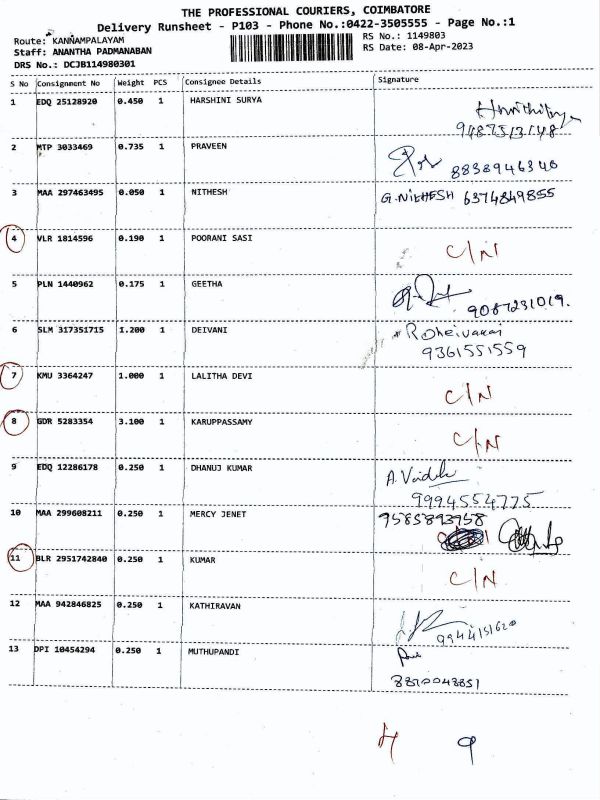 THE PROFESSIONAL COURIERS, COIMBATORE
Delivery Runsheet - P103 - Phone No.:0422-3505555 - Page No.:1
Route: KANNAMPALAYAM
RS No.: 1149803
Staff: ANANTHA PADMANABAN
RS Date: 08-Apr-2023
DRS No.: DCJB114980301
S No Consignment No Weight PCS Consignee Details Signature
1 EDQ 25128920 0.450 1 HARSHINI SURYA
2 MTP 3033469 0.735 1 PRAVEEN
8838946346
3 MAA 297463495 0.050 1 NITHESH G.NITHESH 6374849855
4 VLR 1814596 0.190 1 POORANI SASI
C/N
5 PLN 1440962 0.175 1 GEETHA
9087231019.
6 SLM 317351715 1.200 1 DEIVANI
9361551559
7 KMU 3364247 1.000 1 LALITHA DEVI
C/N
8 GDR 5283354 3.100 1 KARUPPASSAMY
C/N
9 EDQ 12286178 0.250 1 DHANUJ KUMAR
9994554775
10 MAA 299608211 0.250 1 MERCY JENET 9585893758
11 BLR 2951742840 0.250 1 KUMAR
C/N
12 MAA 942846825 0.250 1 KATHIRAVAN
9944151620
13 DPI 10454294 0.250 1 MUTHUPANDI
4 9